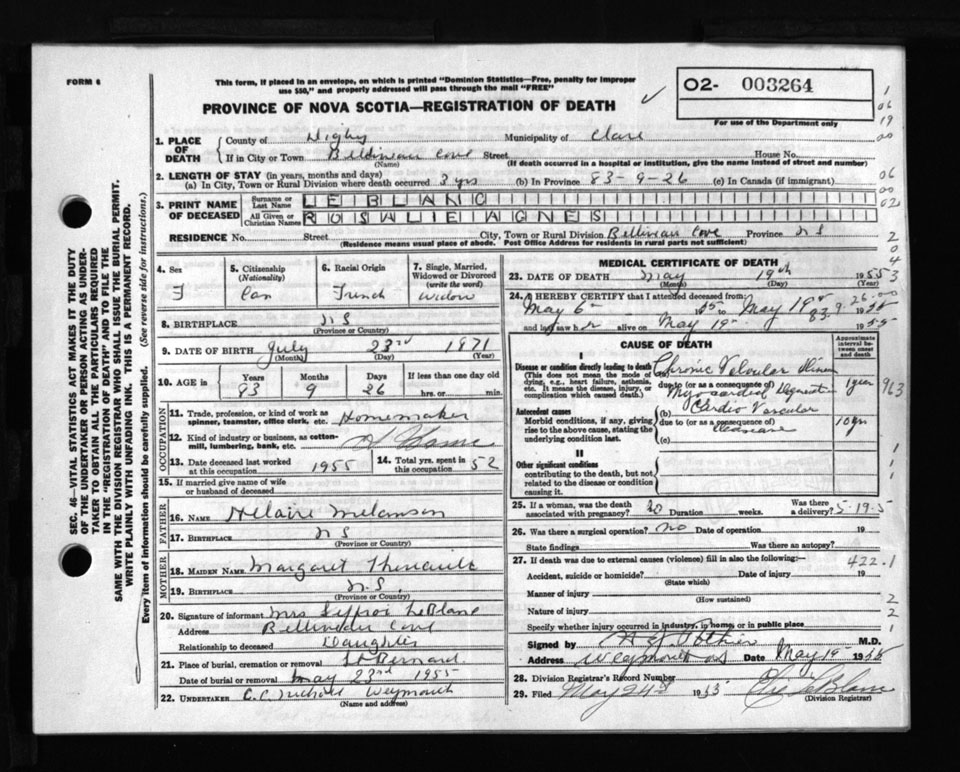 FORM 6
This form, if placed in an envelope, on which is printed "Dominion Statistics—Free, penalty for improper
use $50," and properly addressed will pass through the mail "FREE"
O2- 003264
For use of the Department only
PROVINCE OF NOVA SCOTIA—REGISTRATION OF DEATH
1. PLACE OF DEATH
County of Digby Municipality of Clare
If in City or Town Belliveau Cove Street House No.
(Name) (If death occurred in a hospital or institution, give the name instead of street and number)
2. LENGTH OF STAY (in years, months and days)
(a) In City, Town or Rural Division where death occurred 3 yrs (b) In Province 83-9-26 (c) In Canada (if immigrant)
3. PRINT NAME OF DECEASED
Surname or Last Name LEBLANC
All Given or Christian Names ROSALIE AGNES
RESIDENCE No. Street City, Town or Rural Division Belliveau Cove Province N S
(Residence means usual place of abode. Post Office Address for residents in rural parts not sufficient)
4. Sex F
5. Citizenship (Nationality) Can
6. Racial Origin French
7. Single, Married, Widowed or Divorced (write the word) Widow
8. BIRTHPLACE N S
(Province or Country)
9. DATE OF BIRTH July 23rd 1871
(Month) (Day) (Year)
10. AGE in Years 83 Months 9 Days 26 If less than one day hrs. or min.
OCCUPATION
11. Trade, profession, or kind of work as spinner, teamster, office clerk, etc. Homemaker
12. Kind of industry or business, as cotton-mill, lumbering, bank, etc. Home
13. Date deceased last worked at this occupation 1955
14. Total yrs. spent in this occupation 52
15. If married give name of wife or husband of deceased
FATHER
16. NAME Helaire Melanson
17. BIRTHPLACE N S
(Province or Country)
MOTHER
18. MAIDEN NAME Margaret Theriault
19. BIRTHPLACE N.S.
(Province or Country)
20. Signature of informant Mrs LeBlanc
Address Belliveau Cove
Relationship to deceased Daughter
21. Place of burial, cremation or removal St Bernard
Date of burial or removal May 23rd 1955
22. UNDERTAKER C.C. Weymouth
(Name and address)
MEDICAL CERTIFICATE OF DEATH
23. DATE OF DEATH May 19th 1955
(Month) (Day)
24. I HEREBY CERTIFY that I attended deceased from:
May 6 1955 to May 19 1955
83. 9. 26
and last saw her alive on May 19 1955
CAUSE OF DEATH
Approximate interval between onset and death
I
Disease or condition directly leading to death
(This does not mean the mode of dying, e.g., heart failure, asthenia, etc. It means the disease, injury, or complication which caused death.)
(a) Chronic Valvular
due to (or as a consequence of)
Myocardial 1 year
Antecedent causes
Morbid conditions, if any, giving rise to the above cause, stating the underlying condition last.
(b) Cardio Vascular
due to (or as a consequence of) Disease 10 yrs
(c)
II
Other significant conditions
contributing to the death, but not related to the disease or condition causing it.
25. If a woman, was the death associated with pregnancy? No Duration weeks. Was there a delivery?
5-19-5
26. Was there a surgical operation? No Date of operation 19
State findings Was there an autopsy?
27. If death was due to external causes (violence) fill in also the following:—
422.1
Accident, suicide or homicide? Date of injury 19
(State which)
Manner of injury
(How sustained)
Nature of injury
Specify whether injury occurred in industry, in home, or in public place
Signed by Pothier M.D.
Address Weymouth NS Date May 19 1955
28. Division Registrar's Record Number
29. Filed May 24th 1955 LeBlanc
(Division Registrar)
SEC. 46—VITAL STATISTICS ACT MAKES IT THE DUTY
OF THE UNDERTAKER OR PERSON ACTING AS UNDER-
TAKER TO OBTAIN ALL THE PARTICULARS REQUIRED
IN THE "REGISTRATION OF DEATH" AND TO FILE THE
SAME WITH THE DIVISION REGISTRAR WHO SHALL ISSUE THE BURIAL PERMIT.
WRITE PLAINLY WITH UNFADING INK. THIS IS A PERMANENT RECORD.
Every item of information should be carefully supplied. (See reverse side for instructions.)